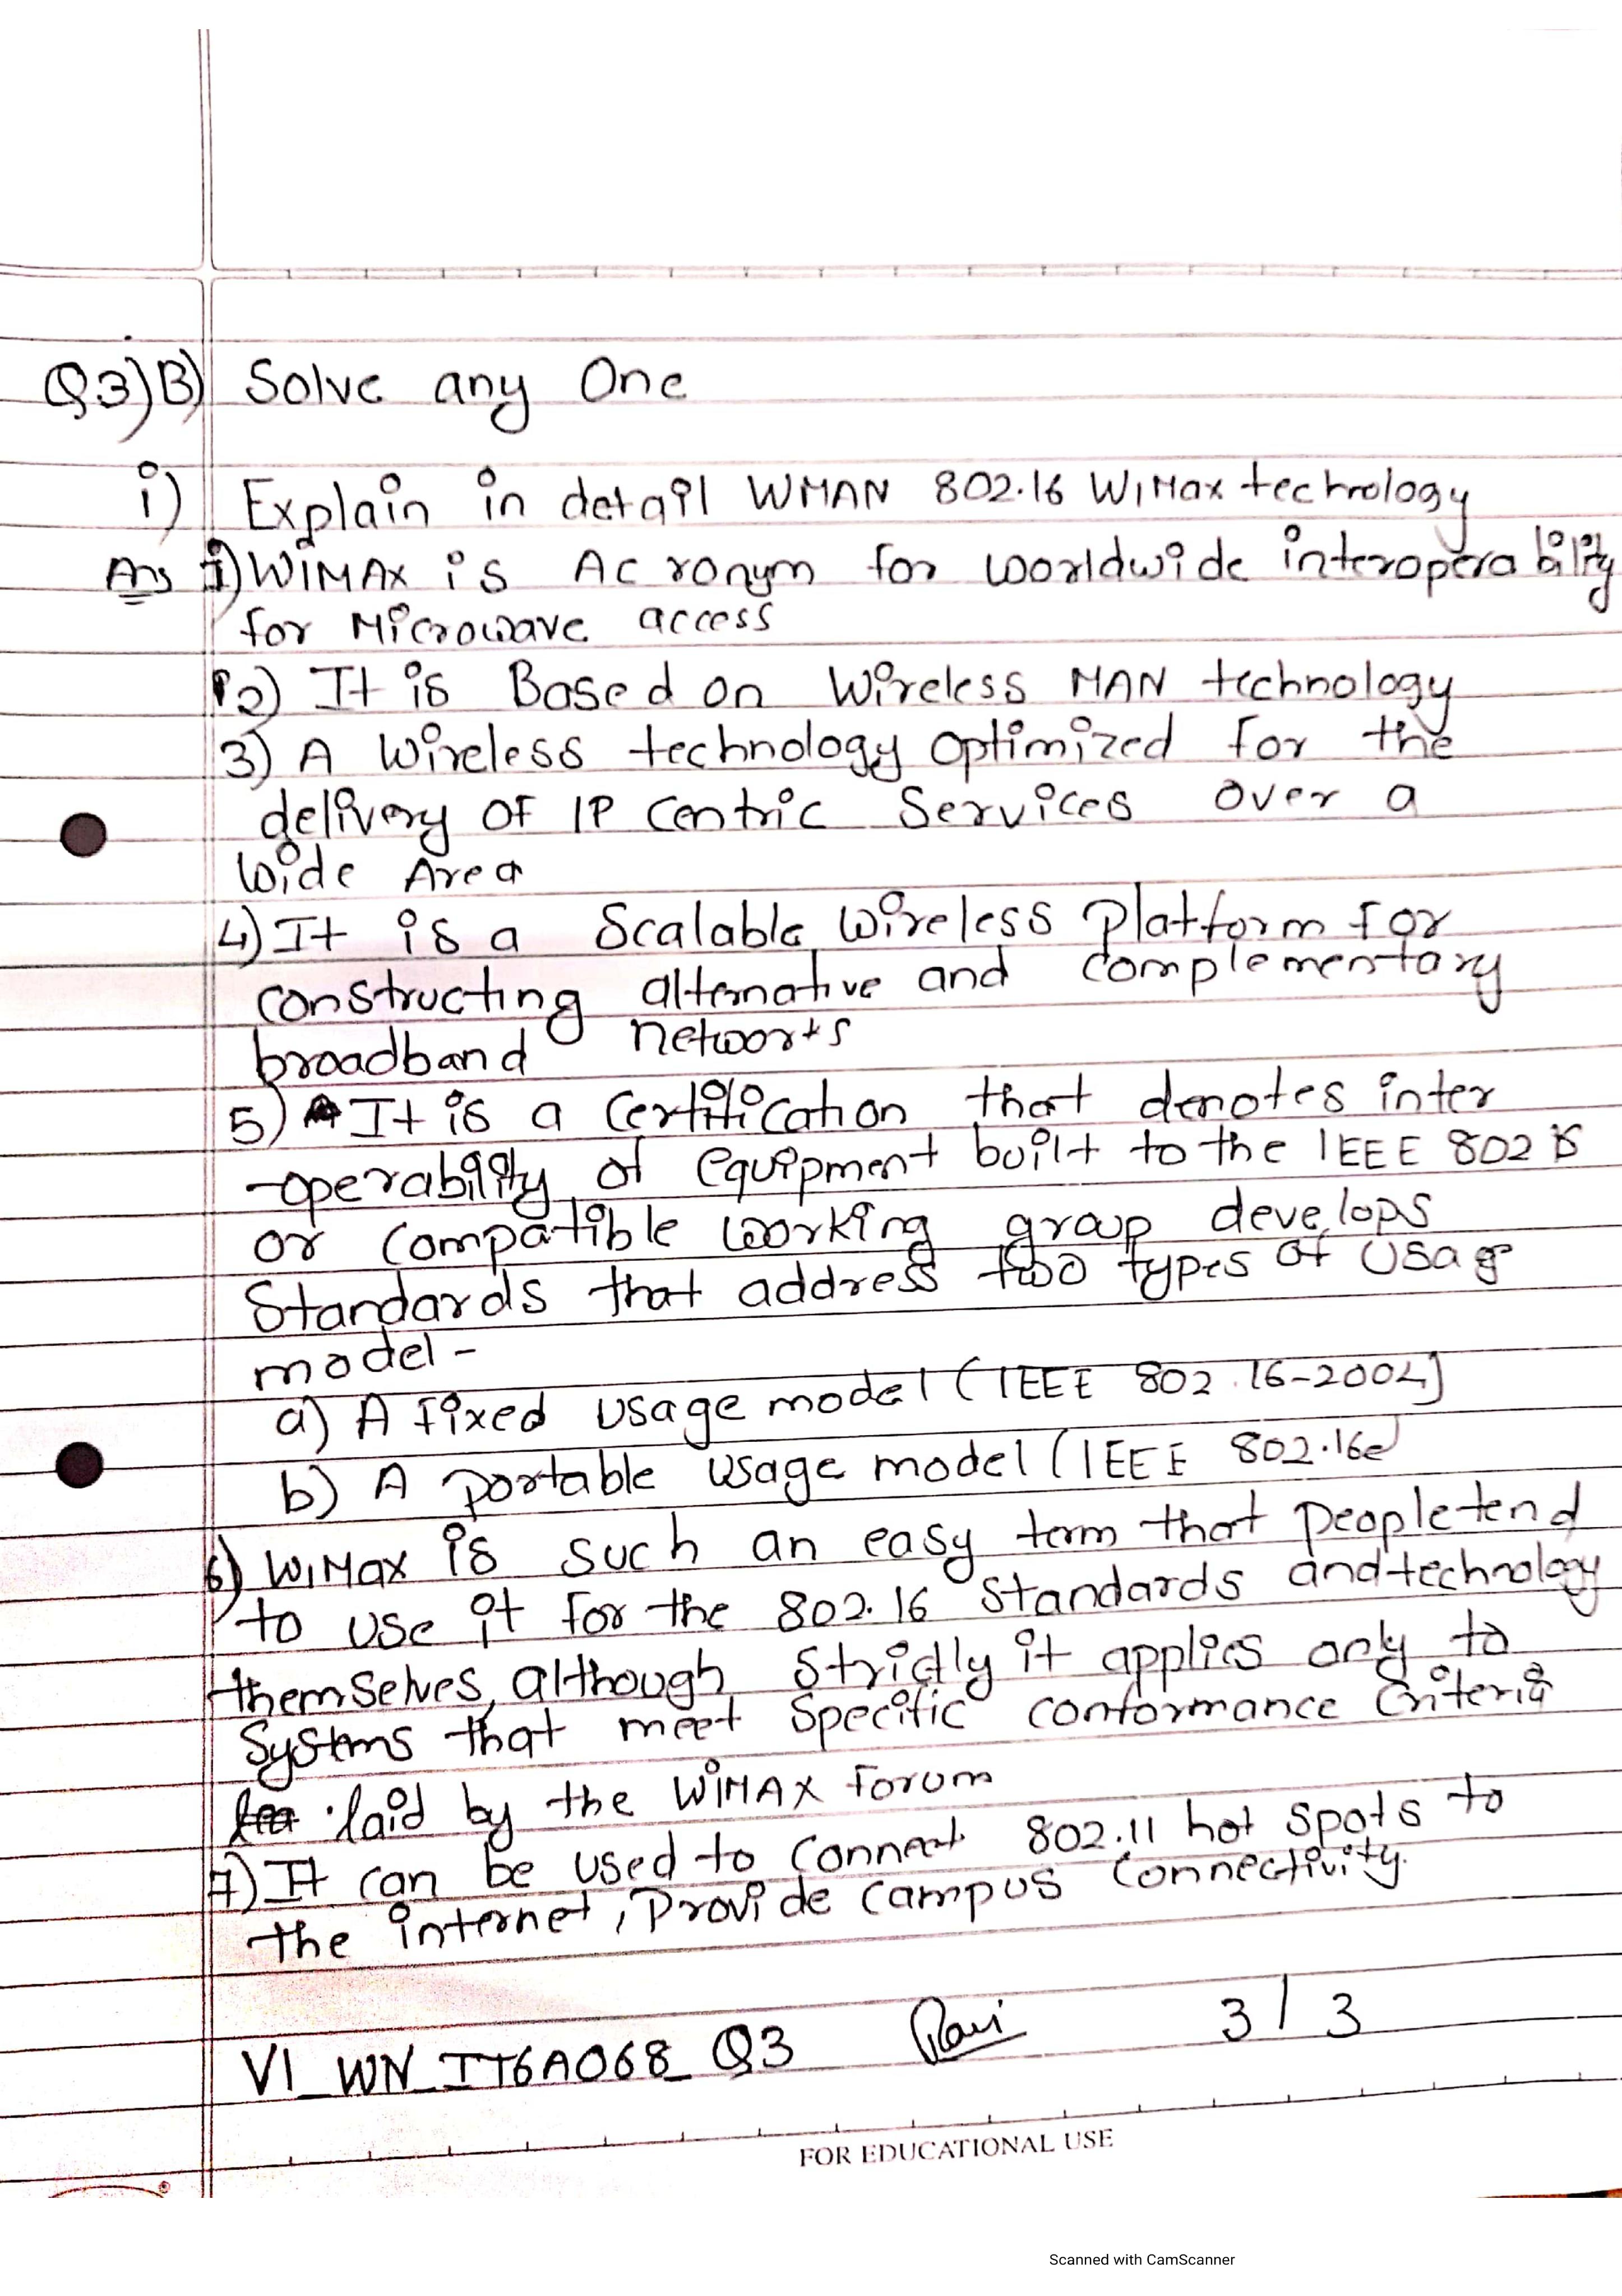 Q3)B) Solve any One
i) Explain in detail WMAN 802.16 WiMax technology
Ans 1) WiMAX is Acronym for worldwide interoperability
for Microwave access
2) It is Based on Wireless MAN technology
3) A Wireless technology optimized for the
delivery OF IP centric Services over a
Wide Area
4) It is a Scalable Wireless Platform for
constructing alternative and complementary
broadband networks
5) It is a Certification that denotes inter
-operability of equipment built to the IEEE 802
or compatible working group develops
Standards that address two types of Usage
model -
a) A Fixed usage model (IEEE 802.16-2004)
b) A portable usage model (IEEE 802.16e)
6) WiMax is such an easy term that People tend
to use it for the 802.16 Standards and technology
themselves, although Strictly it applies only to
Systems that meet Specific conformance Criteria
laid by the WiMAX Forum
7) It can be used to connect 802.11 hot Spots to
the internet, Provide campus connectivity.
VI_WN_IT6A068_Q3 Ravi 3/3
FOR EDUCATIONAL USE
Scanned with CamScanner